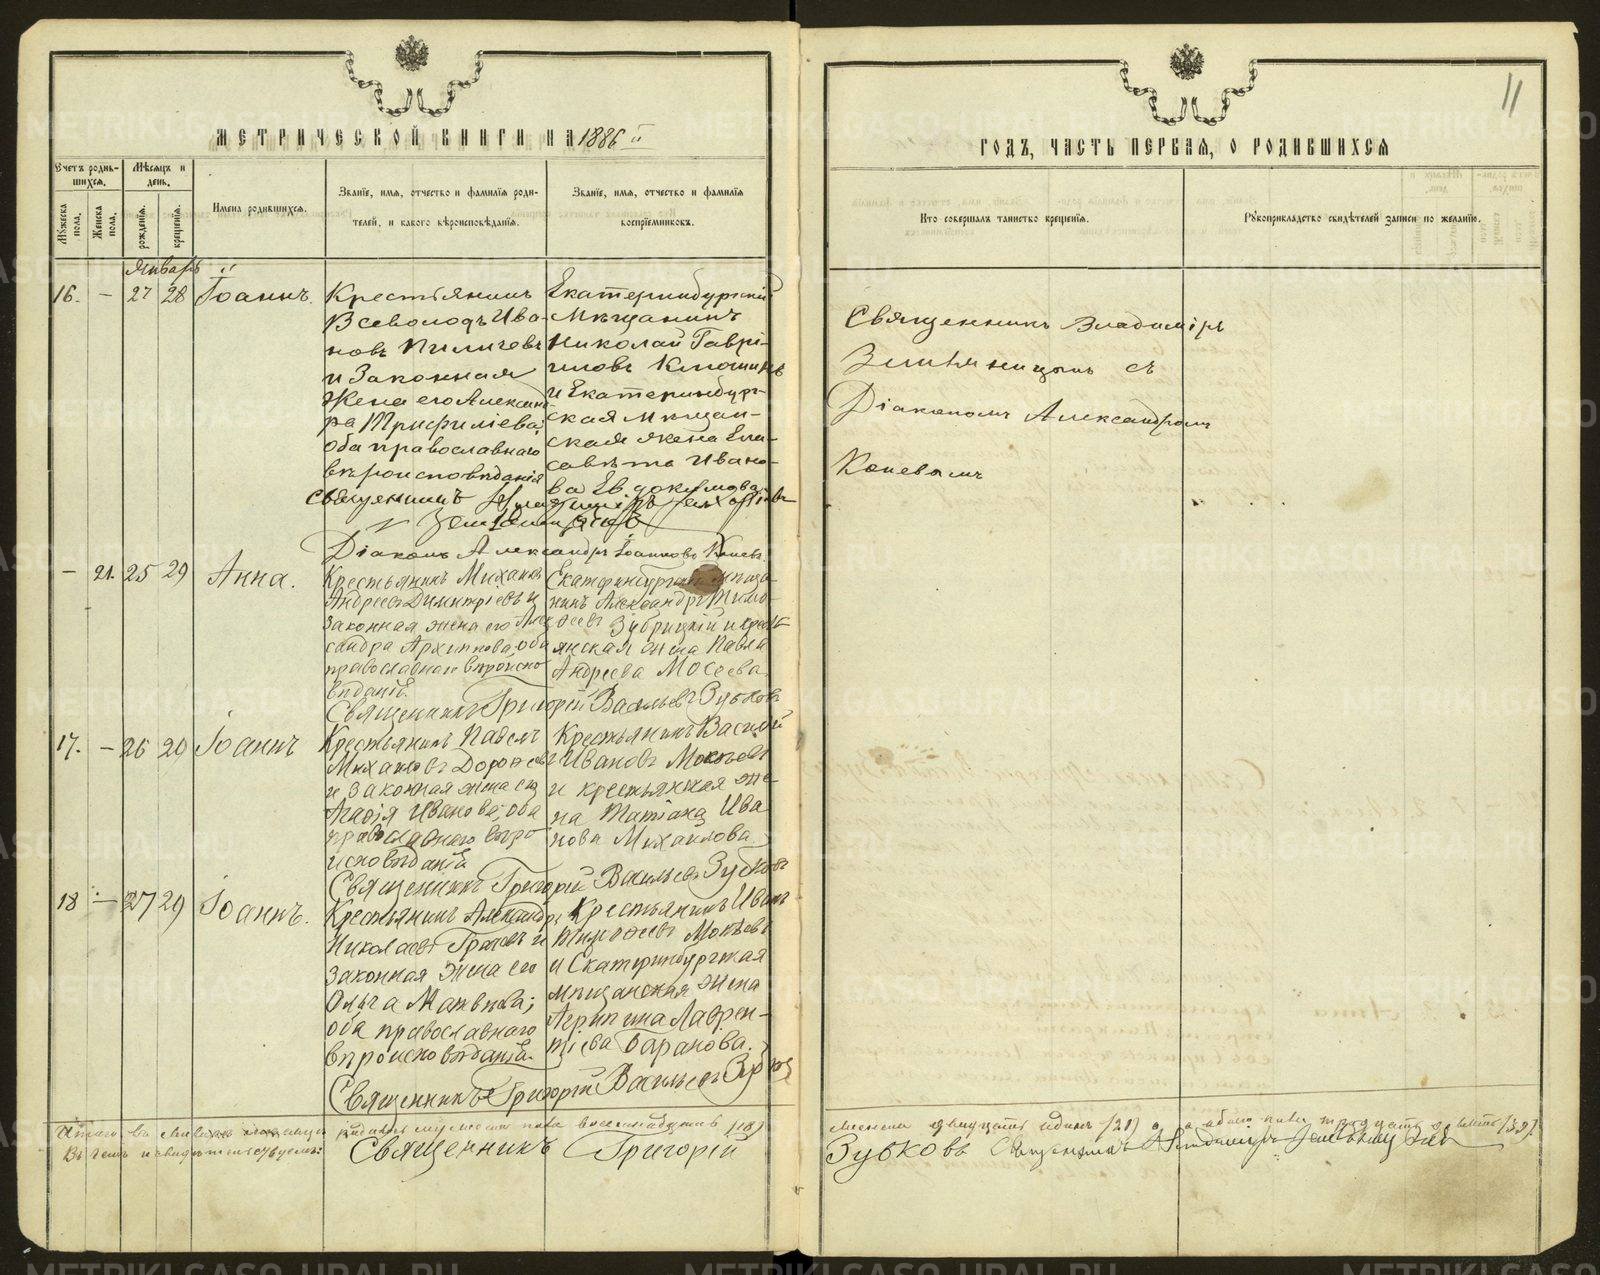 МЕТРИЧЕСКОЙ КНИГИ НА 1886 й
ГОДЪ, ЧАСТЬ ПЕРВАЯ, О РОДИВШИХСЯ
11
Счетъ родив-
шихся.
Мѣсяцъ и
день.
Мужеска
пола.
Женска
пола.
рожденія.
крещенія.
Имена родившихся.
Званіе, имя, отчество и фамилія роди-
телей, и какого вѣроисповѣданія.
Званіе, имя, отчество и фамилія
воспріемниковъ.
Кто совершалъ таинство крещенія.
Рукоприкладство свидѣтелей записи по желанію.
Январь
16. — 27 28 Іоаннъ.
Крестьянинъ
Всеволодъ Ива-
новъ Пиличевъ
и Законная
Жена его Александ-
ра Трифиліева;
оба православнаго
вѣроисповѣданія
Екатеринбургскій
Мѣщанинъ
Николай Гаврі-
иловъ
и Екатеринбург-
ская Мѣщан-
ская жена Ели-
савета Ивано-
ва Евдокимова
Священникъ Владимиръ
Земляницынъ
Діаконъ Александръ Іоанновъ Коневъ
Священникъ Владиміръ
Земляницынъ съ
Діакономъ Александромъ
Коневымъ
— 21. 25 29 Анна.
Крестьянинъ Михаилъ
Андреевъ Димитріевъ и
законная жена его Алек
сандра Архипова, оба
православнаго вѣроиспо-
вѣданія.
Екатеринбургскій мѣща-
нинъ Александръ Тимо-
ѳеевъ Зубрицкій и кресть
янская Павла
Андреева Мосеева
Священникъ Григорій Васильевъ Зубковъ
17. — 26 29 Іоаннъ
Крестьянинъ Павелъ
Михаиловъ Дороѳеевъ
и законная жена его
Агаѳія Иванова; оба
православнаго вѣро
исповѣданія
Крестьянинъ Василій
Ивановъ Мокѣевъ
и крестьянская же-
на Татіана Ива
нова Михайлова
Священникъ Григорій Васильевъ Зубковъ
18 — 27 29 Іоаннъ.
Крестьянинъ Александръ
Николаевъ Грачевъ и
законная жена его
Ольга Матвѣева;
оба православнаго
вѣроисповѣданія.
Крестьянинъ Иванъ
Тимоѳеевъ Мокѣевъ
и Екатеринбургская
мѣщанская жена
Агрипина Лаврен-
тіева Баранова.
Священникъ Григорій Васильевъ Зубковъ
Итого въ январѣ мѣсяцѣ родилось мужеска пола восемнадцать /18/
женска двадцать одинъ /21/, а обоего пола тридцать девять /39/.
Въ чемъ и свидѣтельствуемъ: Священникъ Григорій
Зубковъ Священникъ Владимиръ Земляницынъ
METRIKI.GASO-URAL.RU